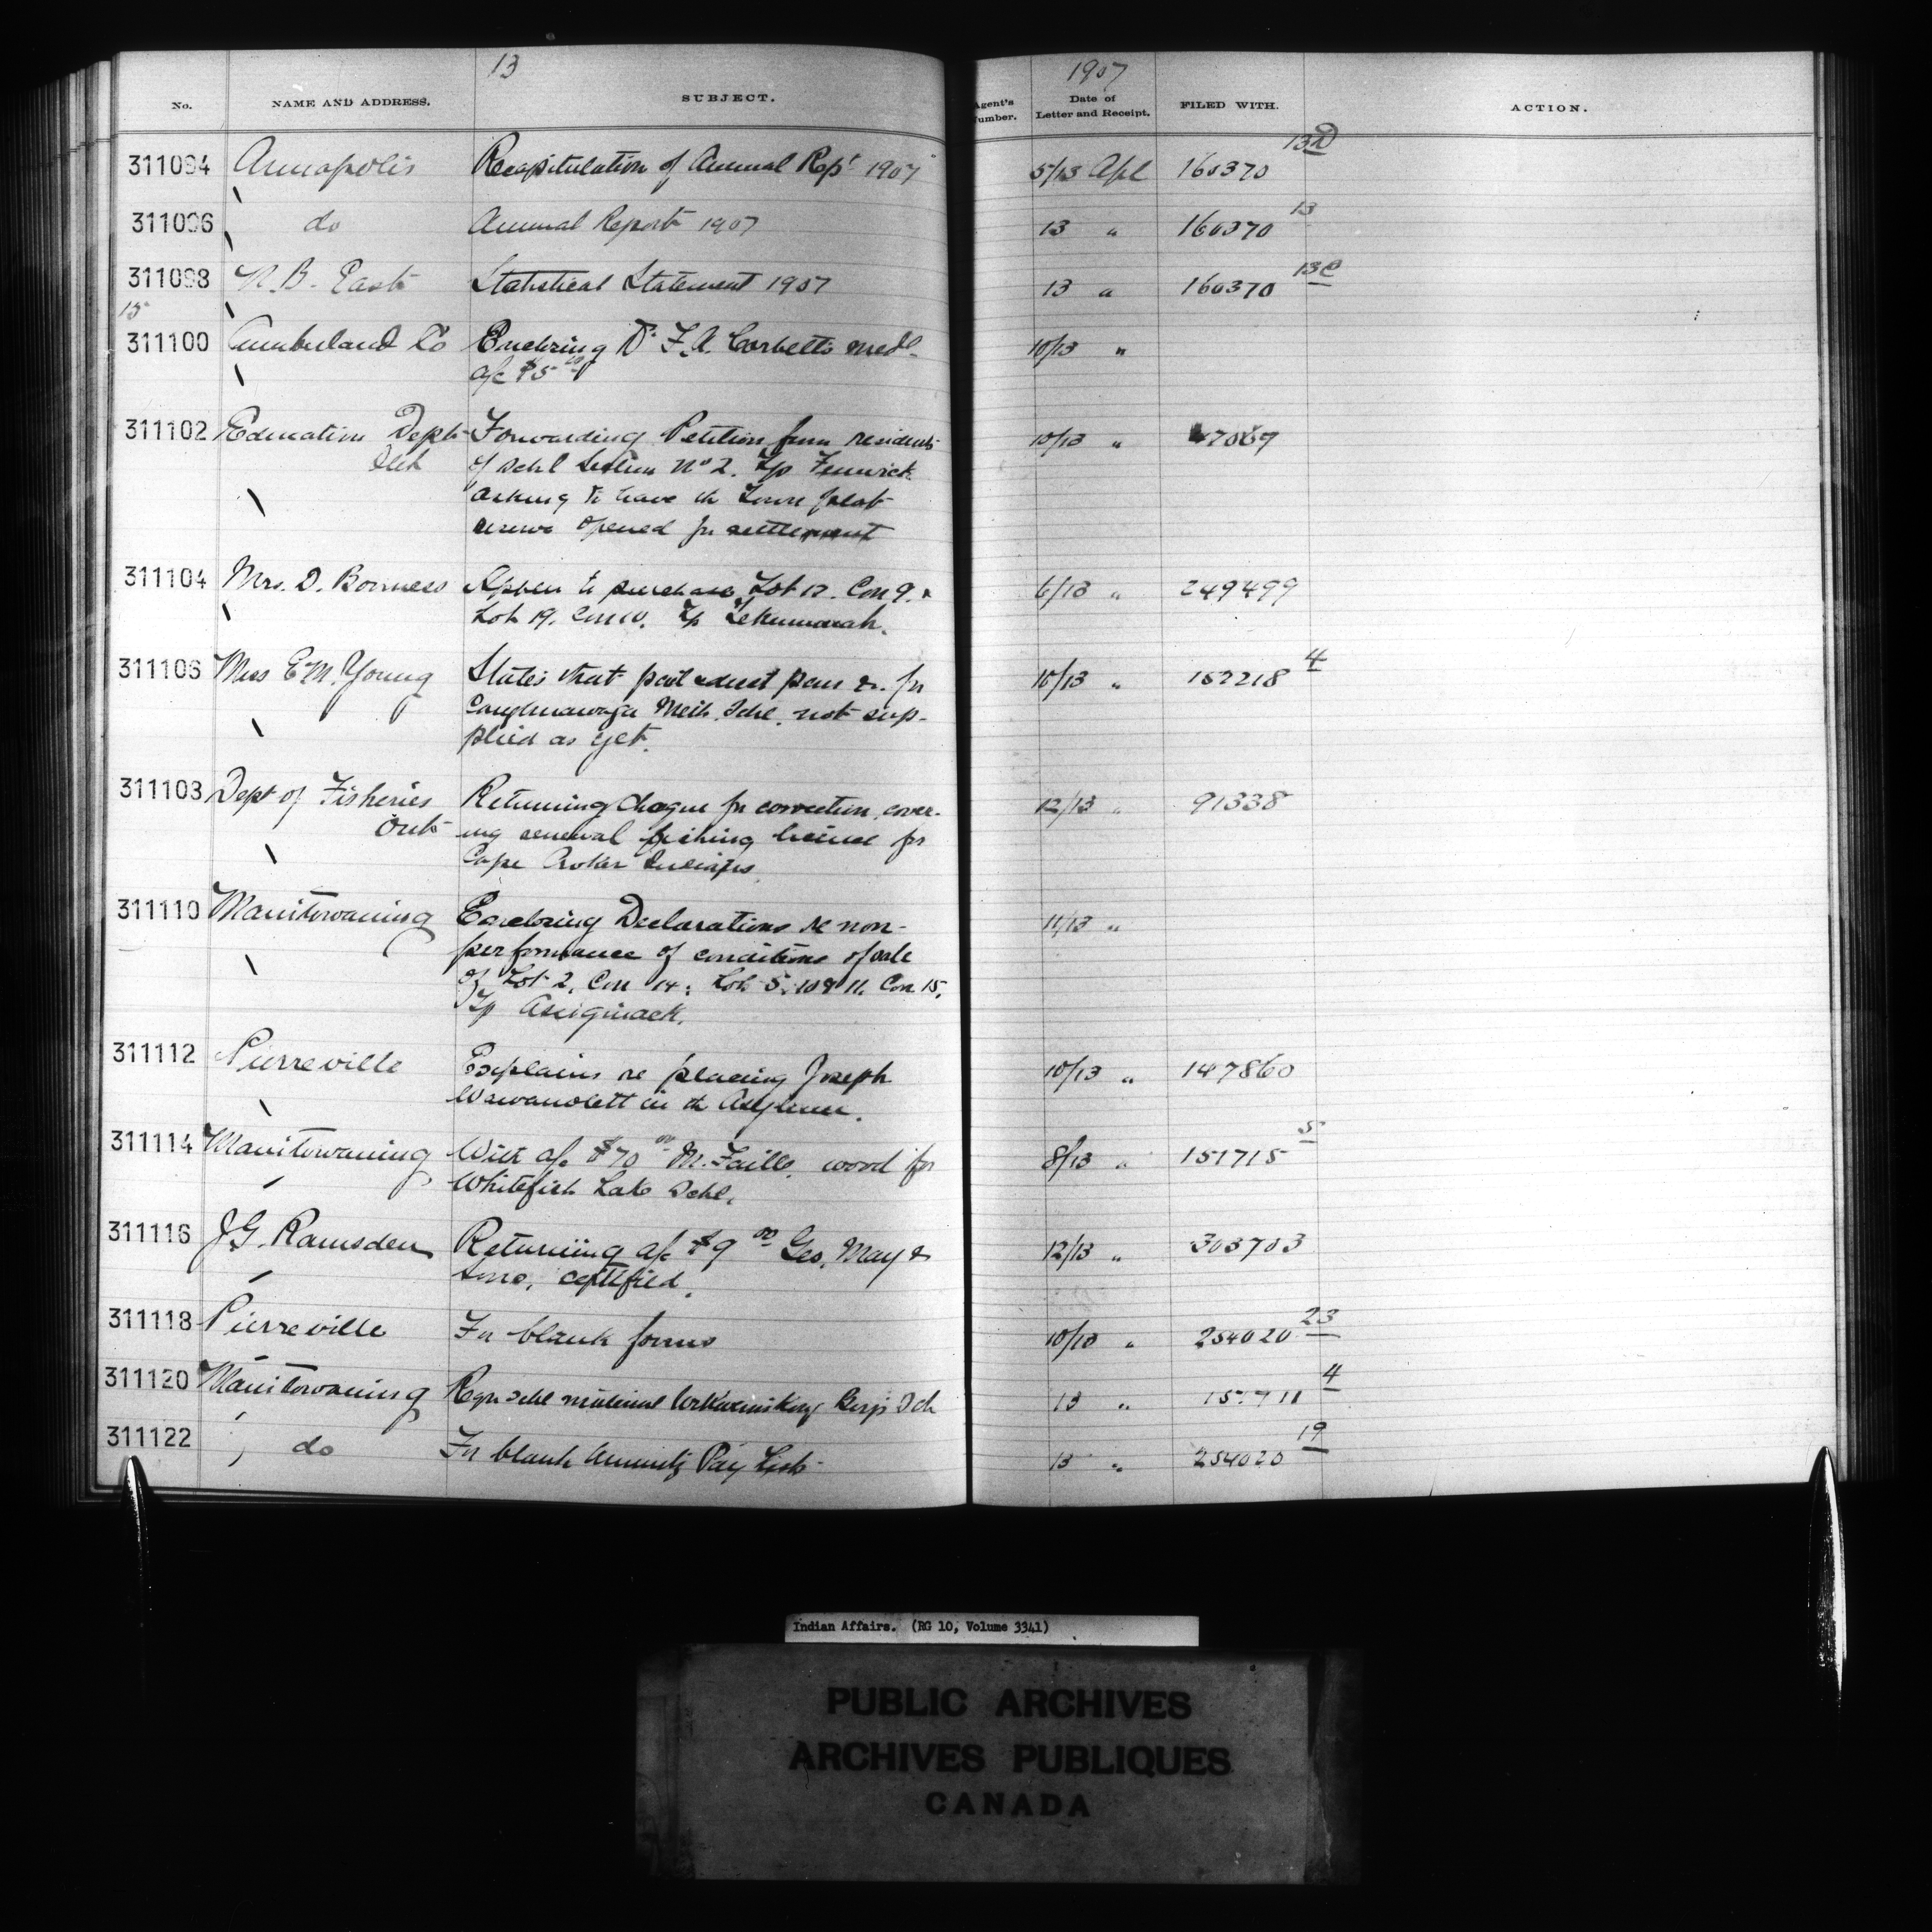 13
No. NAME AND ADDRESS. SUBJECT.
311094 Annapolis Recapitulation of Annual Rept 1907
311096 do Annual Report 1907
311098 N.B. East Statistical Statement 1907
15
311100 Cumberland Co Enclosing Dr F.A. Corbett's medl
a/c $5 00
311102 Education Dept Forwarding Petition from residents
of Schl Section No 2. Tp Fenwick
asking to have the Town plot
reserve opened for settlement
311104 Mrs. D. Appln to purchase Lot 12. Con 9. &
Lot 19. Con 10. Tp Tehkummah.
311106 Miss E.M. Young States that pens &c. for
Caughnawaga Meth. Schl. not sup-
plied as yet.
311108 Dept of Fisheries Returning cheque for correction, cover-
Ont ing renewal fishing license for
Cape Croker Indians.
311110 Manitowaning Enclosing Declarations re non-
performance of conditions of sale
of Lot 2, Con 14; Lots 5, 10 & 11. Con 15,
Tp Assiginack.
311112 Pierreville Explains re placing Joseph
Wawanolett in the Asylum.
311114 Manitowaning With a/c $70 00 M. Faille, wood for
Whitefish Lake Schl.
311116 J.G. Ramsden Returning a/c $9 00 Geo. May &
Sons, certified.
311118 Pierreville For blank forms
311120 Manitowaning Reqn schl material
311122 do For blank Annuity Pay List
1907
Agent's Number. Date of Letter and Receipt. FILED WITH. ACTION.
5/13 Apl 160370 13D
13 " 160370 13
13 " 160370 13C
10/13 "
10/13 " 47069
6/13 " 249499
10/13 " 152218 4
12/13 " 91338
11/13 "
10/13 " 147860
8/13 " 151715 5
12/13 " 303703
10/13 " 254020 23
13 " 4
13 " 254020 19
Indian Affairs. (RG 10, Volume 3341)
PUBLIC ARCHIVES
ARCHIVES PUBLIQUES
CANADA